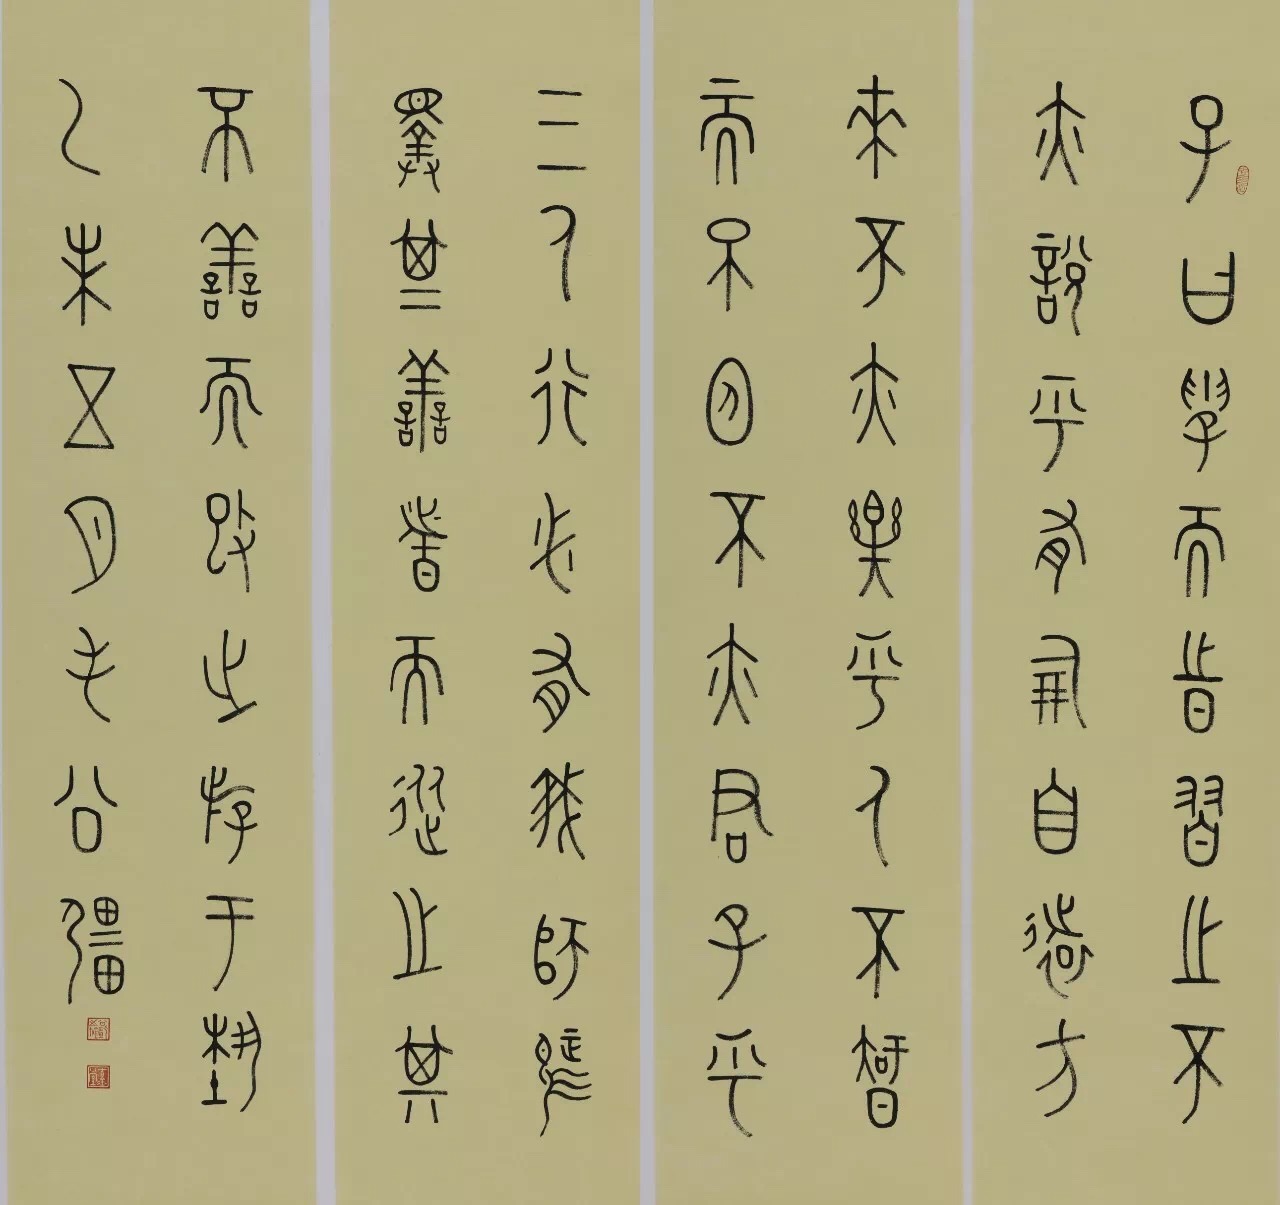 子曰學而時習之不
亦說乎有朋自遠方
來不亦樂乎人不知
而不慍不亦君子乎
三人行必有我師焉
擇其善者而從之其
不善而改之游于藝
乙未五月毛公彊